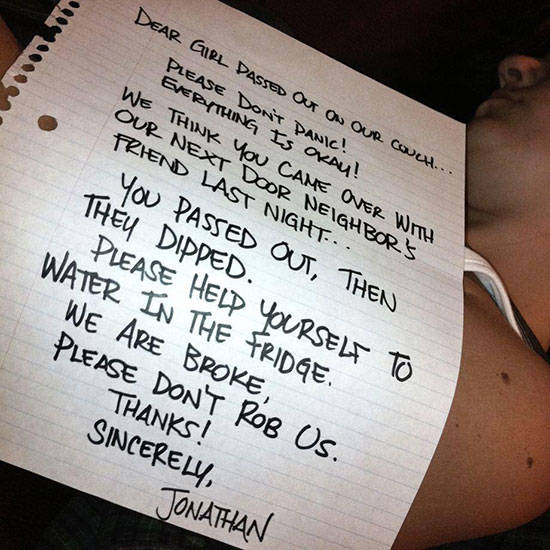 DEAR GIRL PASSED OUT ON OUR COUCH...
PLEASE DON'T PANIC!
EVERYTHING IS OKAY!
WE THINK YOU CAME OVER WITH
OUR NEXT DOOR NEIGHBOR'S
FRIEND LAST NIGHT...
YOU PASSED OUT, THEN
THEY DIPPED.
PLEASE HELP YOURSELF TO
WATER IN THE FRIDGE.
WE ARE BROKE,
PLEASE DON'T ROB US.
THANKS!
SINCERELY,
JONATHAN